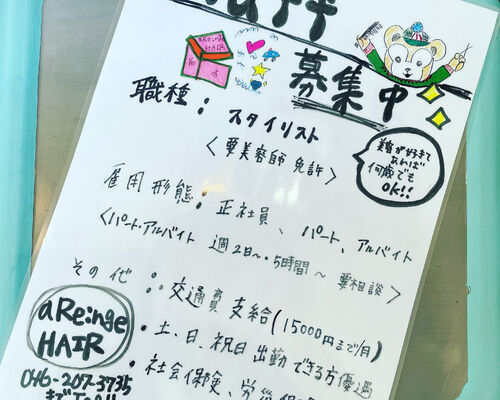 募集中
aRe:nge
HAIR
職種：スタイリスト
<要美容師免許>
美容が好きで
あれば
何歳でも
OK!!
雇用形態：正社員、パート、アルバイト
<パート・アルバイト 週2日～・5時間～ 要相談>
その他：・交通費支給(15000円まで/月)
・土、日、祝日出勤できる方優遇
・社会保険、労災保
aRe:nge
HAIR
046-207-3735
まで